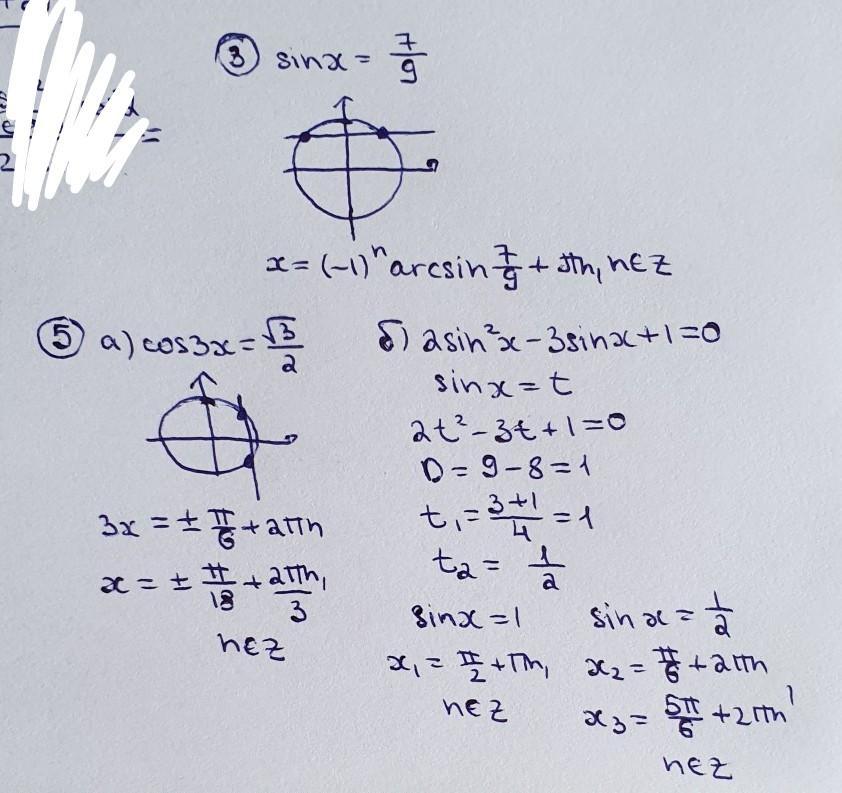 ③ sinx = 7/9
x = (-1)ⁿ arcsin 7/9 + πn, n∈Z
⑤ а) cos3x = √3/2
3x = ± π/6 + 2πn
x = ± π/18 + 2πn/3,
n∈Z
б) 2sin²x - 3sinx + 1 = 0
sinx = t
2t² - 3t + 1 = 0
D = 9 - 8 = 1
t₁ = (3+1)/4 = 1
t₂ = 1/2
sinx = 1
x₁ = π/2 + πn,
n∈Z
sinx = 1/2
x₂ = π/6 + 2πn
x₃ = 5π/6 + 2πn,
n∈Z